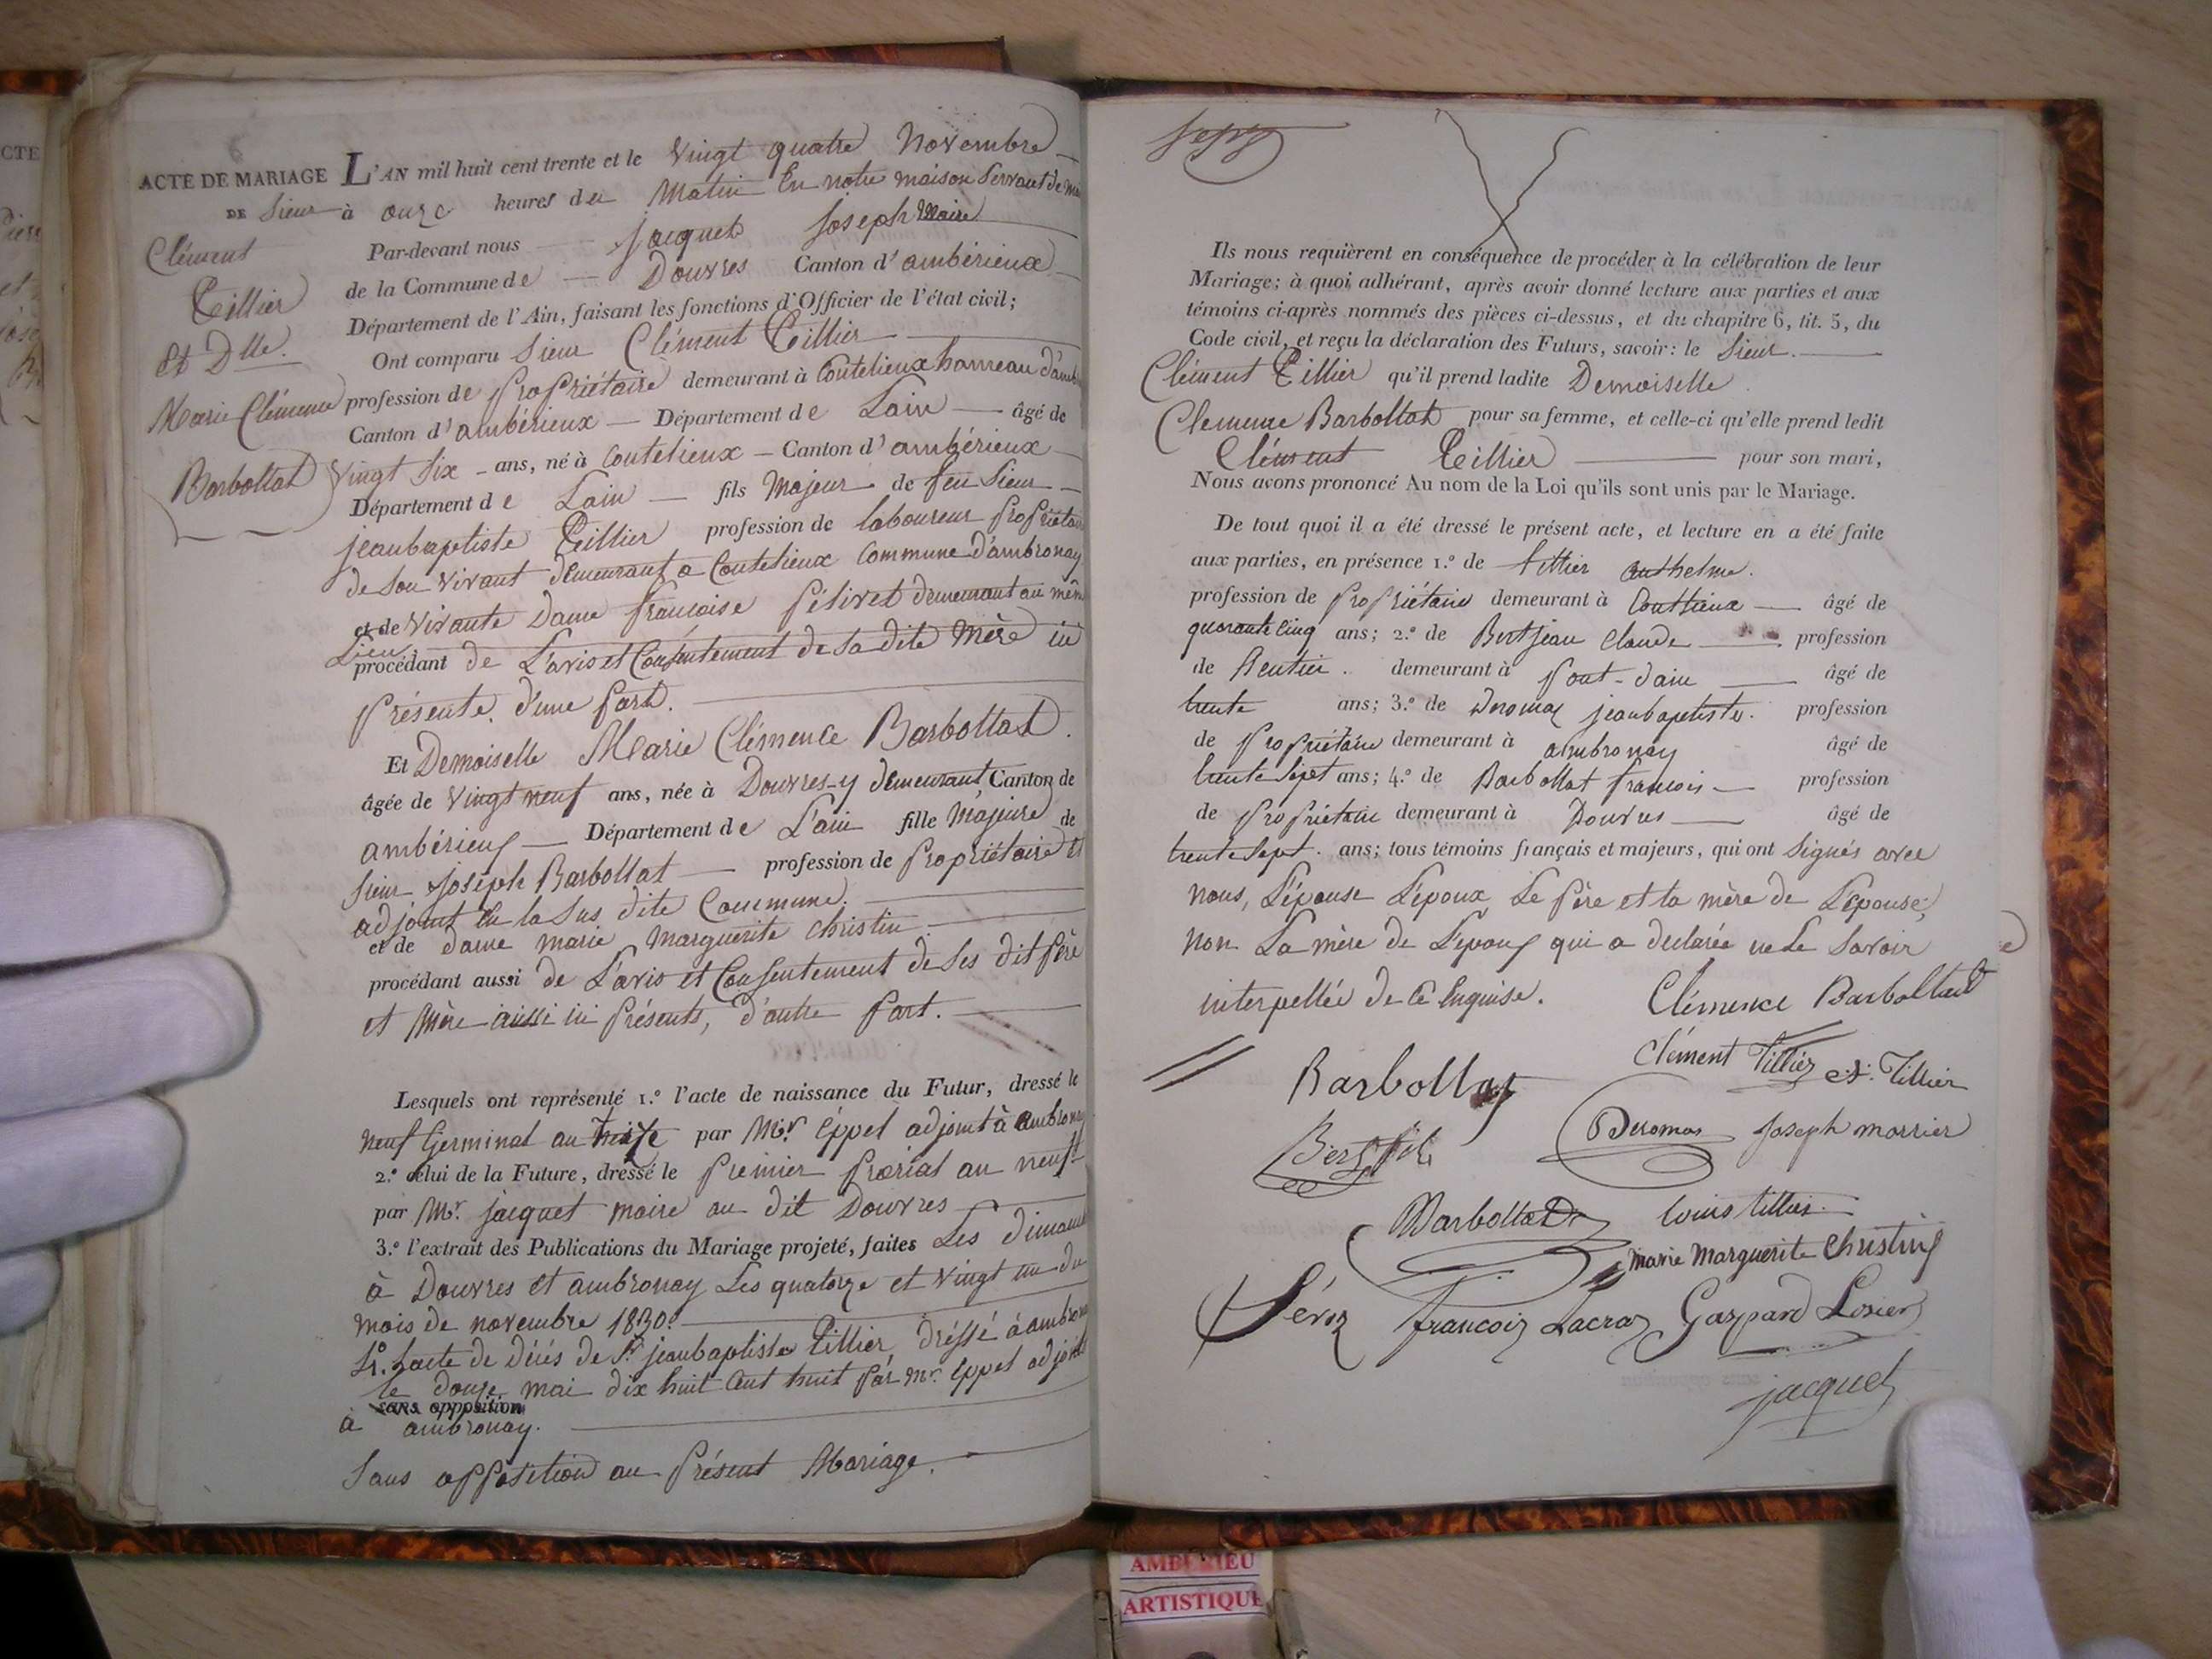 ACTE DE MARIAGE
DE Sieur
Clément
Tillier
Et Dlle.
Marie Clémence
Barbollat
L'AN mil huit cent trente et le Vingt quatre Novembre
à onze heures du Matin En notre maison Servant de
Par-devant nous Jacquet Joseph Maire
de la Commune de Douvres Canton d'ambérieux
Département de l'Ain, faisant les fonctions d'Officier de l'état civil;
Ont comparu Sieur Clément Tillier
profession de Propriétaire demeurant à Coutelieux hameau
Canton d'ambérieux Département de Lain âgé de
Vingt Six ans, né à Coutelieux Canton d'ambérieux
Département de Lain fils Majeur de feu Sieur
jeanbaptiste Tillier profession de laboureur
de Son Vivant demeurant a Coutelieux Commune d'ambronay
et de Vivante Dame francoise demeurant au
Lieu
procédant de L'avis et Consentement de sa dite Mère ici
Présente, d'une Part.
Et Demoiselle Marie Clémence Barbollat.
âgée de Vingt neuf ans, née à Douvres y demeurant Canton de
ambérieux Département de L'ain fille Majeure de
Sieur Joseph Barbollat profession de Propriétaire et
adjoint En la Sus dite Commune.
et de dame marie Marguerite Christin
procédant aussi de L'avis et Consentement de Ses dit Père
et Mère aussi ici Présents, d'autre Part.
Lesquels ont représenté 1.° l'acte de naissance du Futur, dressé le
neuf Germinal an treize par Mr. Eppel adjoint à
2.° celui de la Future, dressé le Premier Prérial an neuf
par Mr. jacquet maire au dit Douvres
3.° l'extrait des Publications du Mariage projeté, faites Les
à Douvres et ambronay Les quatorze et Vingt un du
mois de novembre 1830.
4.° Lacte de Décés de Sr. jeanbaptiste Tillier, dréssé à
le douze mai dix huit Cent huit Par Mr. Eppel adjoint
sans opposition
à ambronay.
Sans opposition au Présent Mariage.
Ils nous requièrent en conséquence de procéder à la célébration de leur
Mariage; à quoi adhérant, après avoir donné lecture aux parties et aux
témoins ci-après nommés des pièces ci-dessus, et du chapitre 6, tit. 5, du
Code civil, et reçu la déclaration des Futurs, savoir: le Sieur.
Clément Tillier qu'il prend ladite Demoiselle
Clemence Barbollat pour sa femme, et celle-ci qu'elle prend ledit
Clément Tillier pour son mari,
Nous avons prononcé Au nom de la Loi qu'ils sont unis par le Mariage.
De tout quoi il a été dressé le présent acte, et lecture en a été faite
aux parties, en présence 1.° de tillier anthelme.
profession de Propriétaire demeurant à âgé de
quarante Cinq ans; 2.° de claude profession
de Rentier. demeurant à Pont-dain âgé de
trente ans; 3.° de Deromas jeanbaptiste. profession
de Propriétaire demeurant à ambronay âgé de
trente Sept ans; 4.° de Barbollat francois profession
de Propriétaire demeurant à Douvres âgé de
trente Sept. ans; tous témoins français et majeurs, qui ont Signés avec
nous, L'épouse L'époux, Le Père et la mère de L'épouse,
non La mère de L'epoux qui a declarée ne Le Savoir
interpellée de Ce Enquise.
Clémence Barbollat
Clément Tillier
Tillier
Barbollat
Deromas
Joseph morrier
Barbollat
louis tillier.
Marie Marguerite Christin
francois Lacroz
Gaspard Losier
jacquet
AMBERIEU
ARTISTIQUE